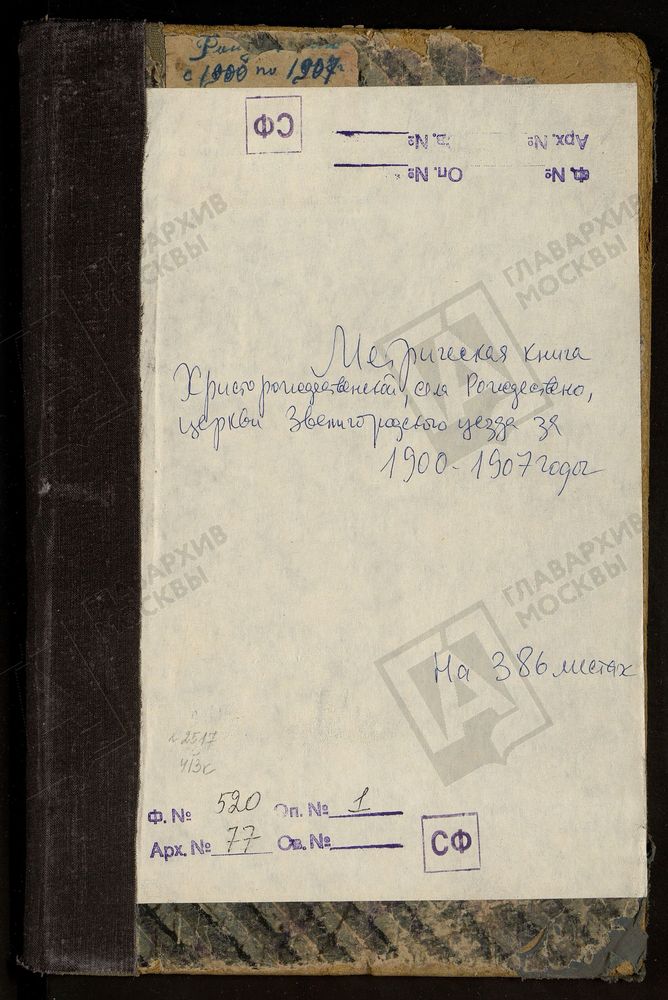 с 1900 по 1907 г
СФ
Арх. № Св. №
Ф. № Оп. №
Метрическая книга
Христорождественской, села Рождествено,
церкви Звенигородского уезда за
1900-1907 годы
На 386 листах
ГЛАВАРХИВ
МОСКВЫ
ГЛАВАРХИВ
МОСКВЫ
ГЛАВАРХИВ
МОСКВЫ
ГЛАВАРХИВ
МОСКВЫ
Ф. № 520 Оп. № 1
Арх. № 77 Св. №
СФ